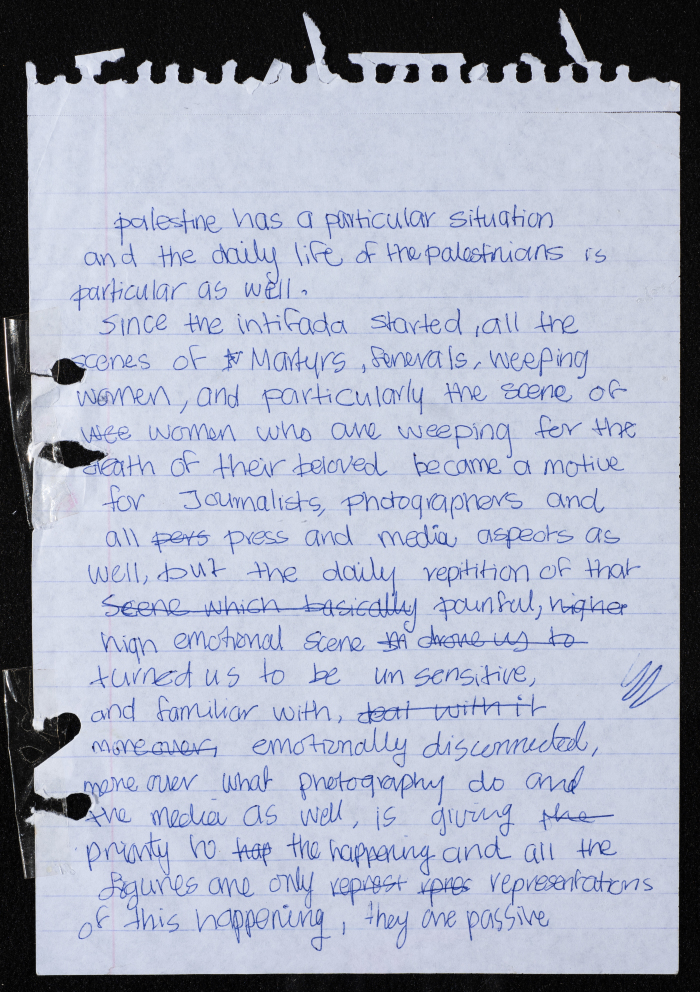 palestine has a particular situation
and the daily life of the palestinians is
particular as well.
Since the intifada started, all the
scenes of Martyrs, funerals, weeping
women, and particularly the scene of
wee women who are weeping for the
death of their beloved became a motive
for Journalists, photographers and
all pers press and media aspects as
well, but the daily repitition of that
Scene which basically painful, higher
high emotional scene drove us to
turned us to be un sensitive,
and familiar with, deal with it
moreover, emotionally disconnected,
more over what photography do and
the media as well, is giving the
priority to hap the happening and all the
figures are only represt rpres representations
of this happening, they are passive